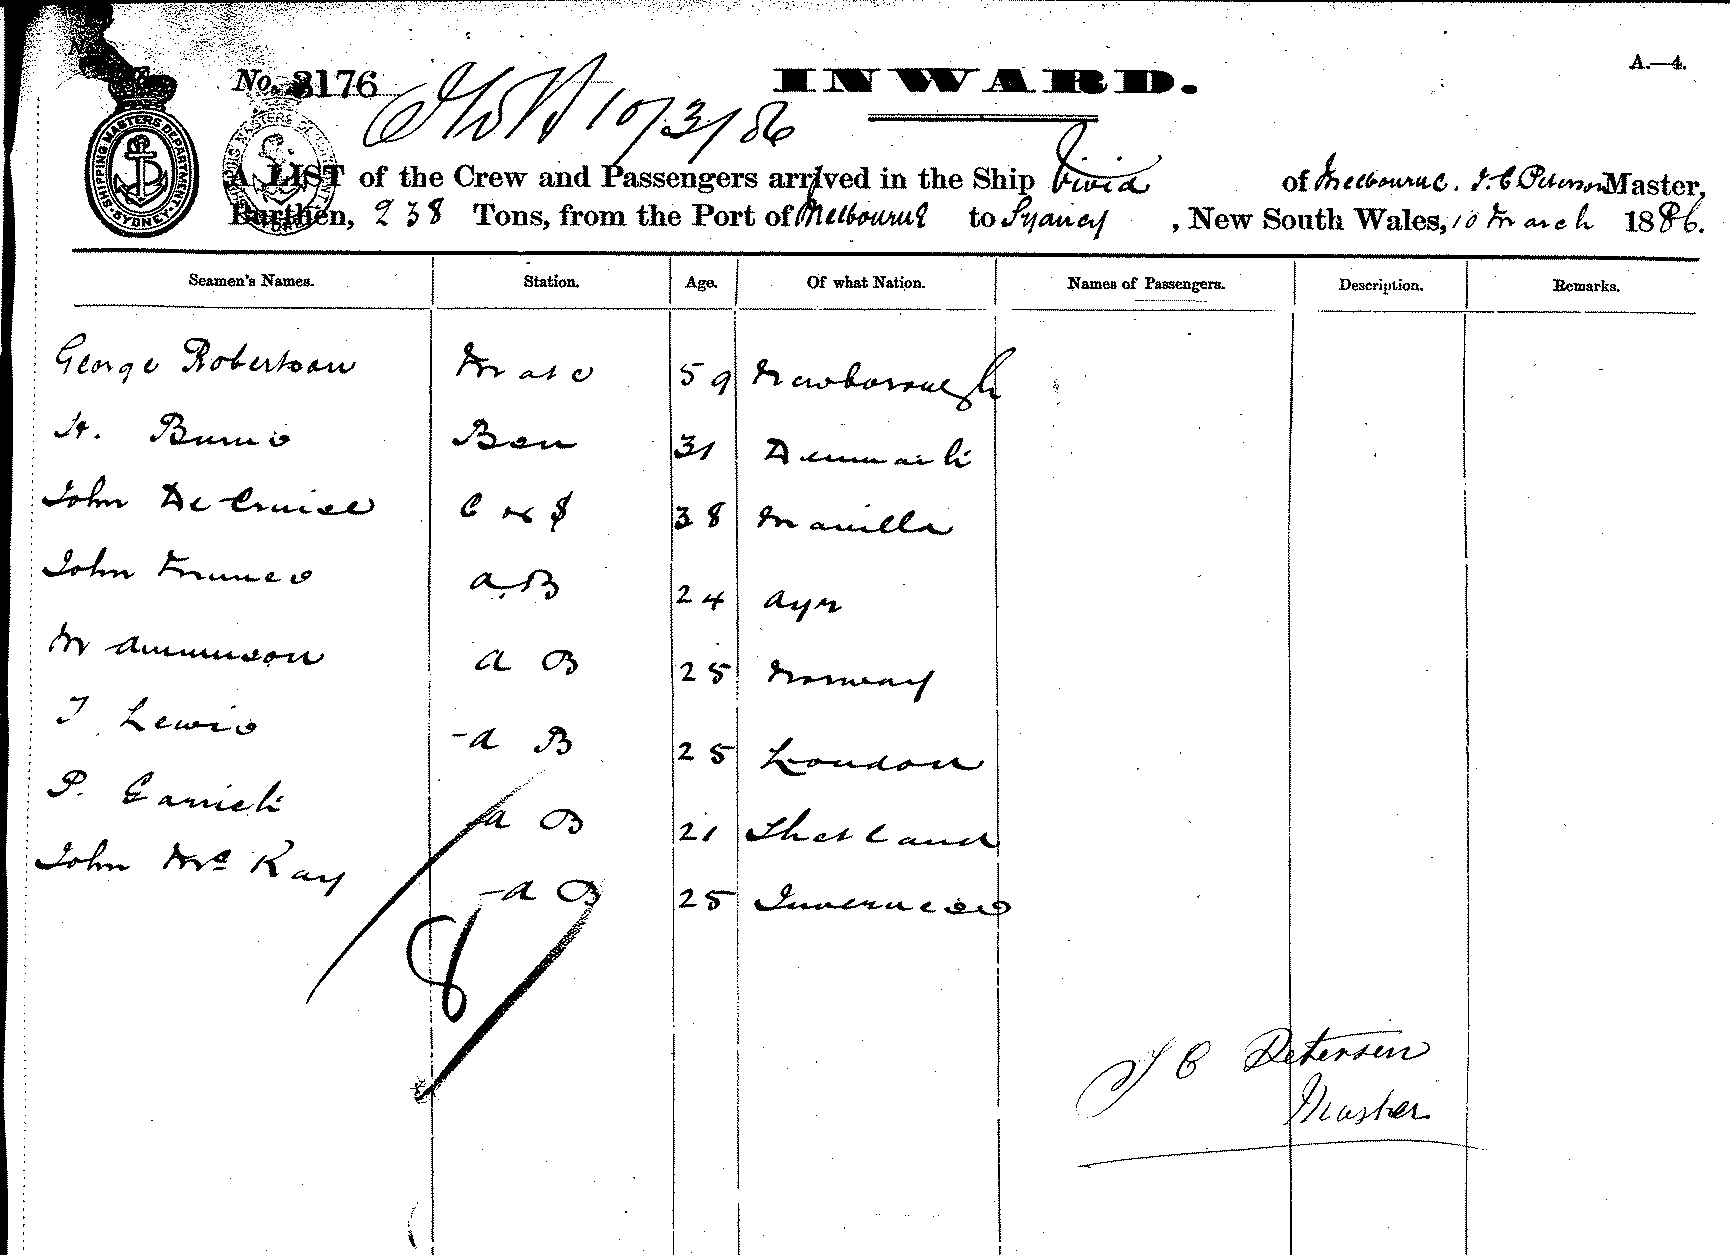 A.—4.
No. 3176
INWARD.
10/3/86
SHIPPING MASTERS DEPARTMENT SYDNEY
A LIST of the Crew and Passengers arrived in the Ship Vivid of Melbourne. J. C Peterson Master,
Burthen, 238 Tons, from the Port of Melbourne to Sydney, New South Wales, 10 March 1886.
Seamen's Names. Station. Age. Of what Nation. Names of Passengers. Description. Remarks.
George Robertson Mate 59 Newborough
H. Burns Bsn 31 Denmark
John De Cruise C & S 38 Manilla
John A.B 24 Ayr
M Ammunson A B 25 Norway
T Lewis A B 25 London
P. Garrick A B 21 Shetland
John McKay A B 25 Inverness
8
J C Petersen
Master